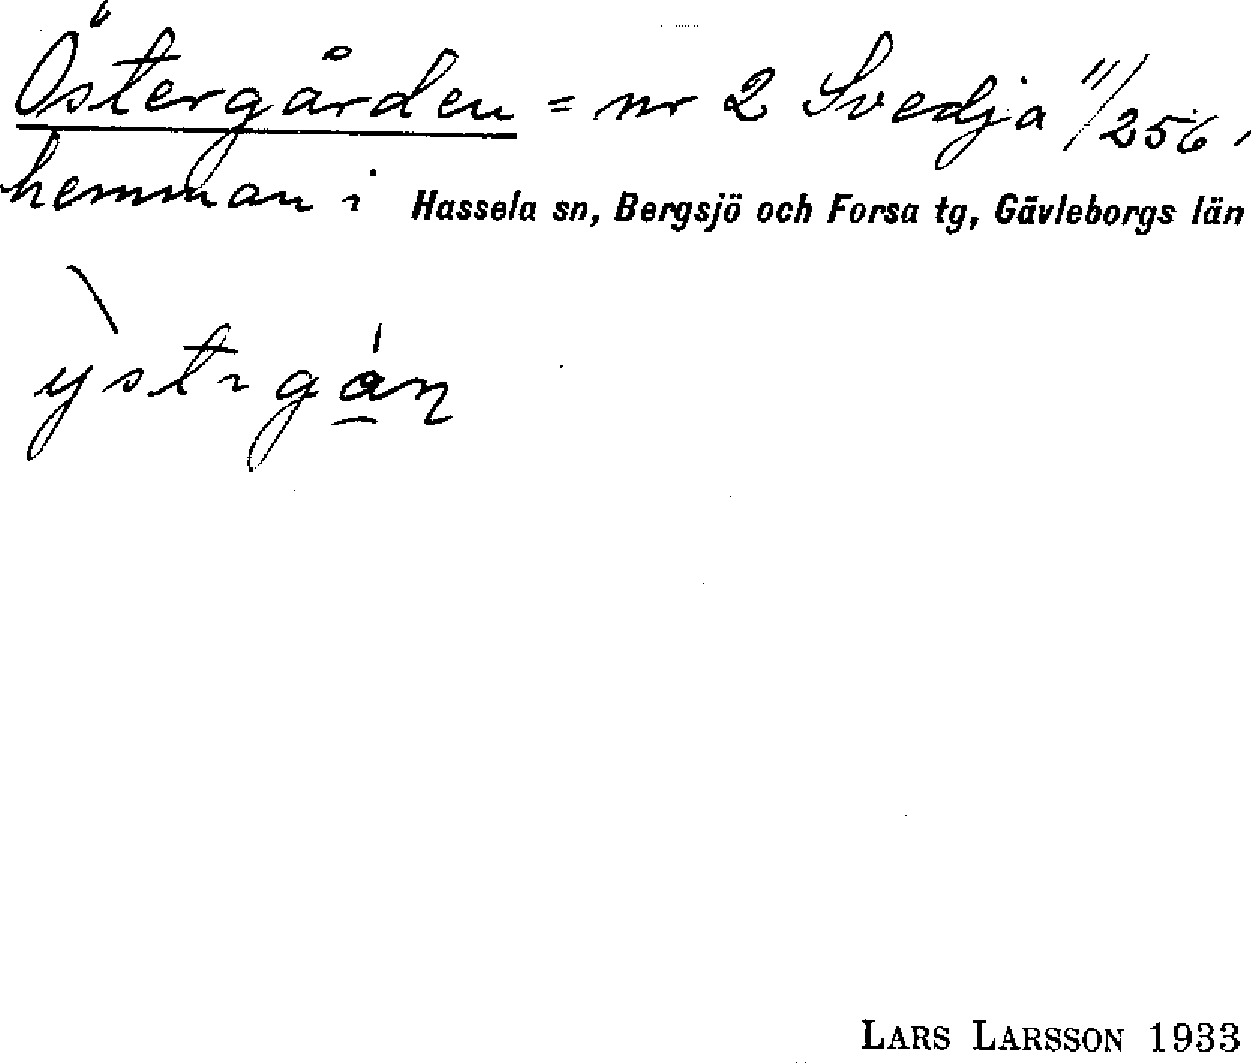 Östergården = nr 2 Svedja 11/256,
hemman i Hassela sn, Bergsjö och Forsa tg, Gävleborgs län
LARS LARSSON 1933